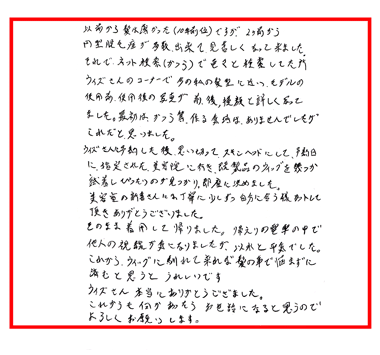 以前から髪が薄かった(10年前位)ですが、2ヶ月前から
円型脱毛症が多数、出来て、見苦しくなって来ました。
それで、ネット検索(かつら)で色々と検索した所
ウィズさんのコーナーで 今の私の髪型に近いモデルの
使用前、使用後の写真が 前、後、横顔と詳しく載って
ました。最初は、かつら等、作る気持は、ありませんでしたが
これだと思いました。
ウィズさんに予約した後、思い切って、スキンヘッドにして、予約日
に、指定された、美容院に行き、既製品のウィッグを幾つか
試着し ぴったりのが見つかり、即座に決めました。
美容室の
さんに
丁寧に 少しずつ 自分に合う様カットして
頂き ありがとうございました。
そのまま 着用して 帰りました。帰えりの電車の中で
他人の視線が気になりましたが、以外と平気でした。
これから、ウィッグに馴れて来れば 髪の事で悩まずに
済むと思うと うれしいです
ウィズさん 本当にありがとうございました。
これからも何かあったら お世話になると思うので
よろしくお願いします。